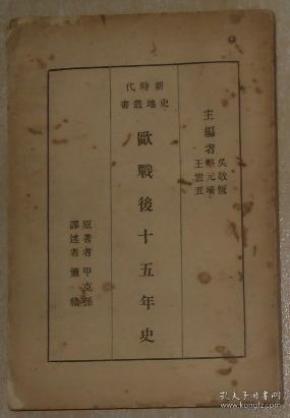 新時代
史地叢書
主編者
吳敬恆
蔡元培
王雲五
歐戰後十五年史
原著者 甲克孫
譯述者
孔夫子旧书网